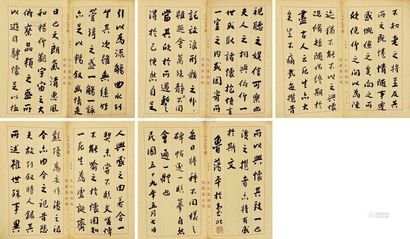 引以為流觴曲水列
坐其次雖無絲竹
管絃之盛一觴一詠
亦足以暢敘幽情是
日也天朗氣清惠風
和暢仰觀宇宙之大
俯察品類之盛所以
遊目騁懷足以極
視聽之娛信可樂也
夫人之相與俯仰一
世或取諸懷抱悟言
一室之內或因寄所
託放浪形骸之外
雖趣舍萬殊靜躁不同
當其欣於所遇暫得於
己快然自足
不知老之將至及其
所之既倦情隨事
遷感慨係之矣向之所
欣俛仰之間已為陳
迹猶不能不以之興懷
況脩短隨化終期於
盡古人云死生亦大
矣豈不痛哉每攬昔
人興感之由若合一
契未嘗不臨文嗟悼
不能喻之於懷固知
一死生為虛誕齊
彭殤為妄作後之視
今亦由今之視昔悲
夫故列敘時人錄其
所述雖世殊事異
所以興懷其致一也
後之攬者亦將有感
於斯文
魯蕩平於臺北
民國五十九年五月七日